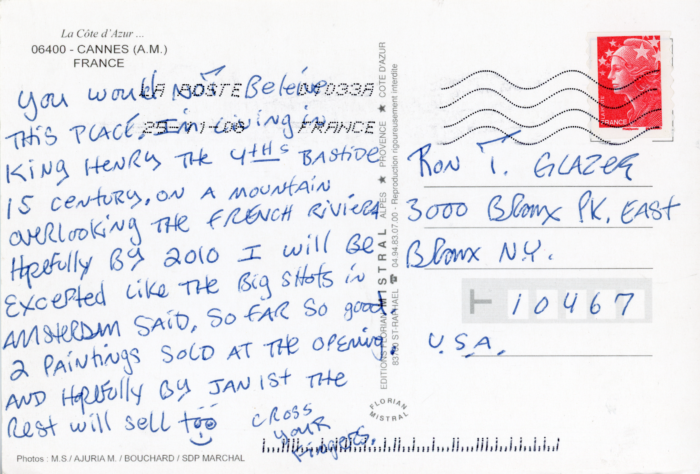 La Côte d'Azur ...
06400 - CANNES (A.M.)
FRANCE
LA POSTE 04033A
25-11-08 FRANCE
You would NOT Beleive
THIS PLACE, I'm living in
KING HENRY THE 4THS BASTIDE
15 CENTURY, ON A MOUNTAIN
OVERLOOKING THE FRENCH RIVIERA
Hopefully BY 2010 I will BE
EXCEPTED LIKE THE BIG SHOTS IN
AMSTERDAM SAID, SO FAR SO good
2 PAINTINGS SOLD AT THE OPENING.
AND HOPEFULLY BY JAN 1ST THE
REST will SELL TOO
CROSS
YOUR
Fingers.
Photos : M.S / AJURIA M. / BOUCHARD / SDP MARCHAL
EDITIONS FLORIAN MISTRAL ALPES ★ PROVENCE ★ COTE D'AZUR
83700 ST-RAPHAEL ☎ 04.94.83.07.00 - Reproduction rigoureusement interdite
FLORIAN
MISTRAL
FRANCE
RON T. GLAZER
3000 BRONX PK. EAST
BRONX N.Y.
10467
U.S.A.